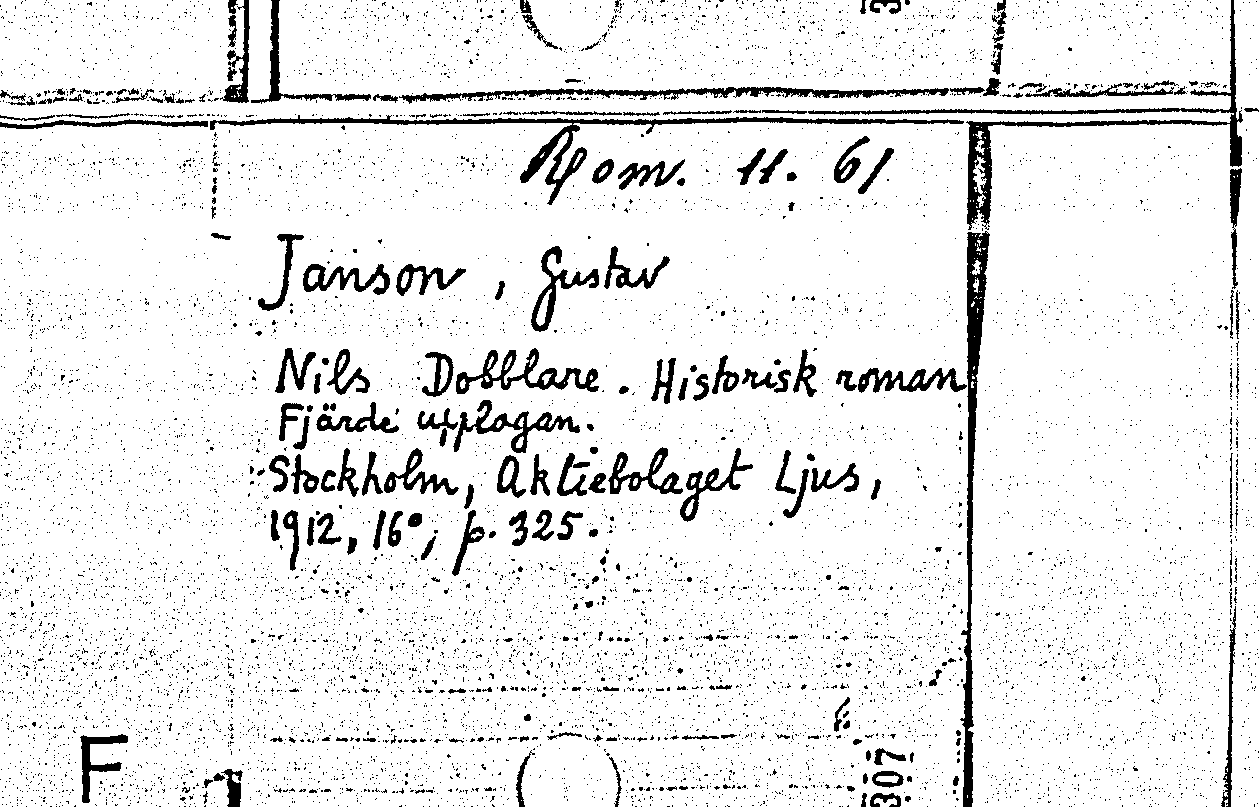 Rom. 11. 61
Janson, Gustav
Nils Dobblare. Historisk roman
Fjärde upplagan.
Stockholm, Aktiebolaget Ljus,
1912, 16°, p. 325.
F
307